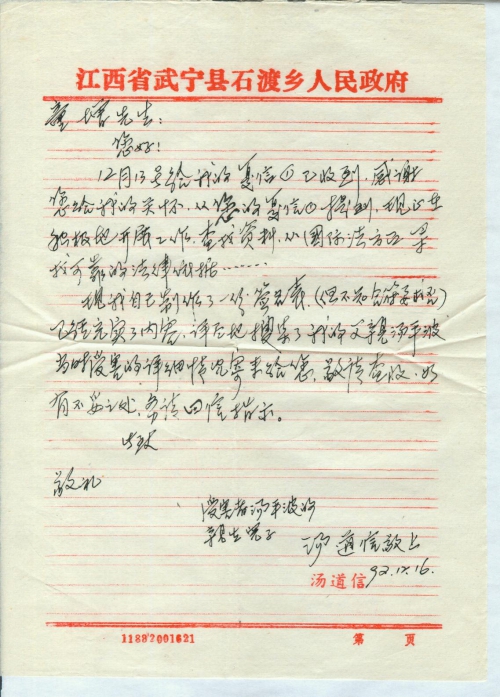 江西省武宁县石渡乡人民政府
童增先生:
您好!
12月13号给我的复信①已收到,感谢
您给我的关怀,从您的复信①提到,现正在
积极地开展工作,查找资料,从国际法方面寻
找可靠的法律依据……
现我自己制作了一份签名表,(但不知
已经充实了内容,详细地搜集了我的父亲汤平波
当时受害的详细情况寄来给您,敬请查收,如
有不妥之处,务请回信指示。
此致
敬礼
受害者汤平波的
亲生儿子
汤道信敬上
汤道信 92.12.16.
11882001621 第 页